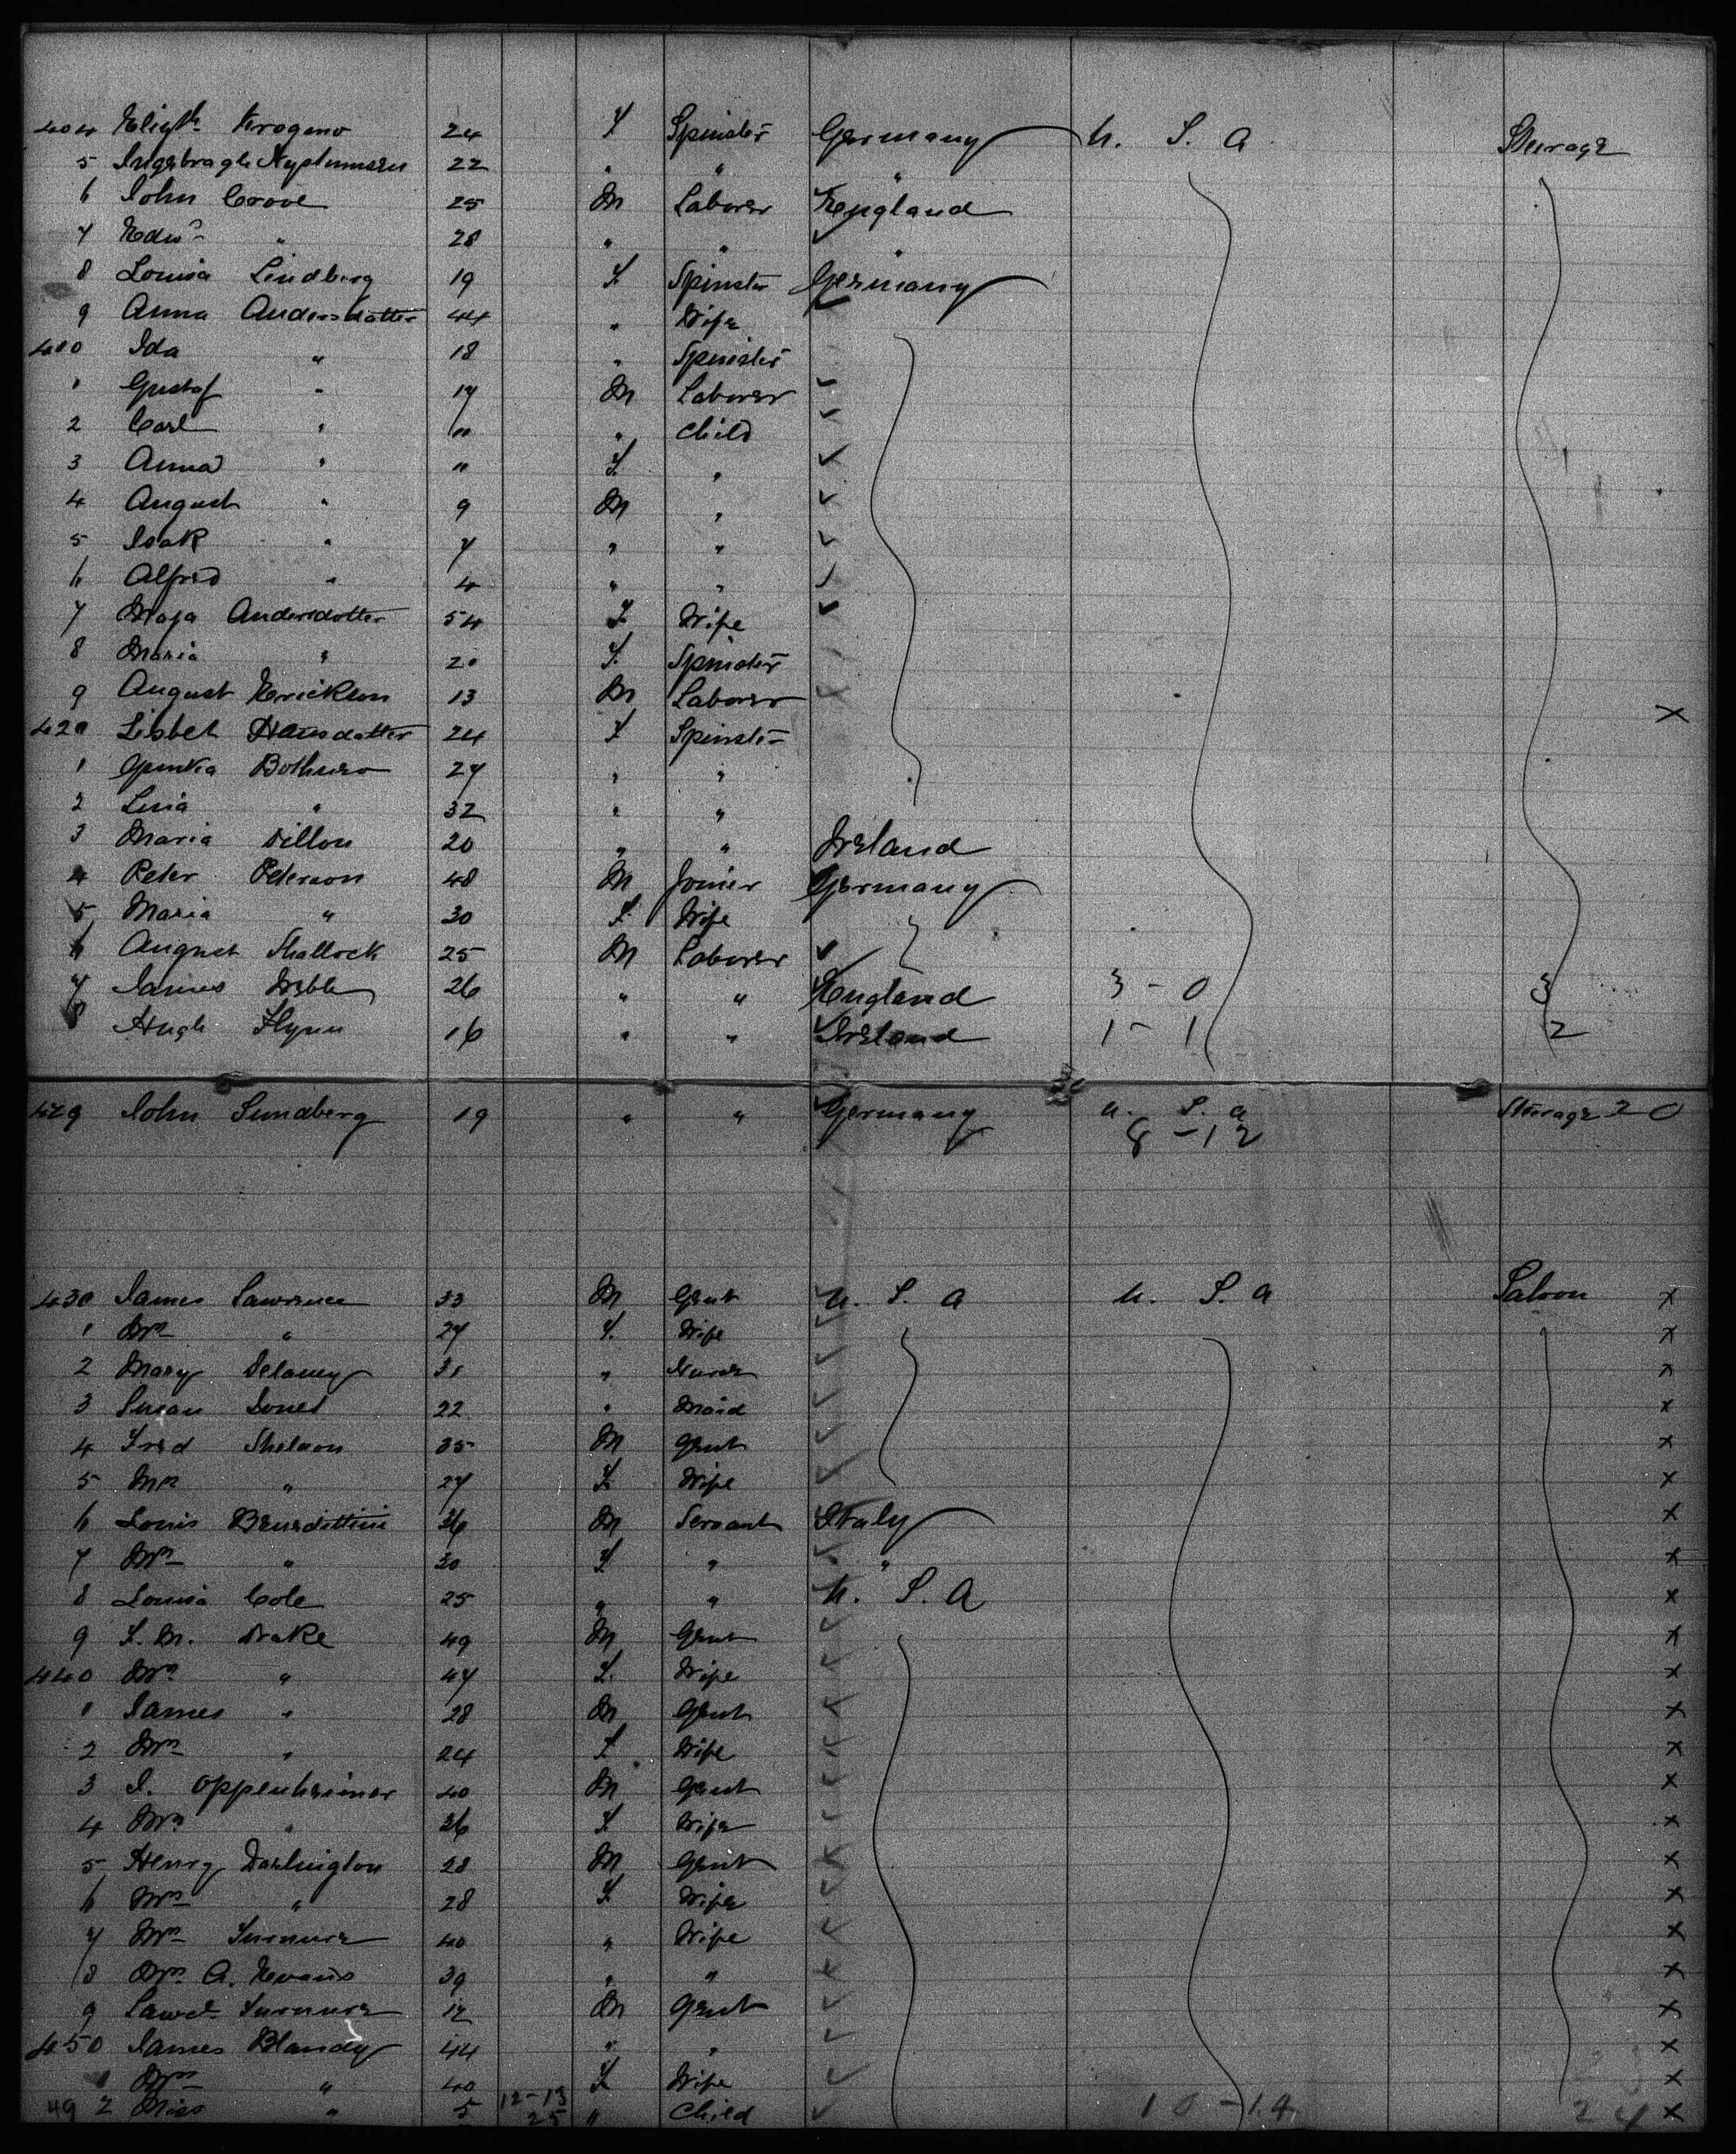 404 Elizth Krogeno 24 F Spinster Germany U. S. A Steerage
5 22 " " "
6 John Crove 25 M Laborer England
7 Edwd " 28 " " "
8 Louisa Lindberg 19 F. Spinster Germany
9 Anna Andersdotter 44 " Wife
410 Ida " 18 " Spinster
1 Gustaf " 17 M Laborer
2 Carl " 11 " Child
3 Anna " 11 F. "
4 August " 9 M "
5 Isak " 7 " "
6 Alfred " 4 " "
7 Maja Andersdotter 54 F. Wife
8 Maria " 20 F. Spinster
9 August Erickson 13 M Laborer
420 Lisbet Hansdatter 24 F Spinster x
1 27 " "
2 Lina " 32 " "
3 Maria Dillon 20 " " Ireland
4 Peter Peterson 48 M Joiner Germany
5 Maria " 30 F. Wife
6 August Shallock 25 M Laborer
7 James 26 " " England 3 - 0 3
8 Hugh Flynn 16 " " Ireland 1 - 1 2
429 John Sundberg 19 " " Germany U. S. A Steerage 20
8 - 12
430 James Lawrence 33 M Gent U. S. A U. S. A Saloon x
1 Mrs " 27 F. Wife x
2 Mary Delaney 31 " Nurse x
3 Susan Jones 22 " Maid x
4 Fred Sheldon 35 M Gent x
5 Mrs " 27 F. Wife x
6 Louis Benedittini 36 M Servant Italy x
7 Mrs " 30 F " " x
8 Louisa Cole 25 " " U. S. A x
9 F. M. Drake 49 M Gent x
440 Mrs " 47 F. Wife x
1 James " 28 M Gent x
2 Mrs " 24 F. Wife x
3 I. Oppenheimer 40 M Gent x
4 Mrs " 36 F Wife x
5 Henry Darlington 28 M Gent x
6 Mrs " 28 F. Wife x
7 Mrs Turnure 40 " Wife x
8 Mrs A. Evans 39 " " x
9 Lawce Turnure 12 M Gent x
450 James Blandy 44 " " x
1 Mrs " 40 F. Wife x
49 2 Miss " 5 12-13 25 " Child 10 - 14 24 x